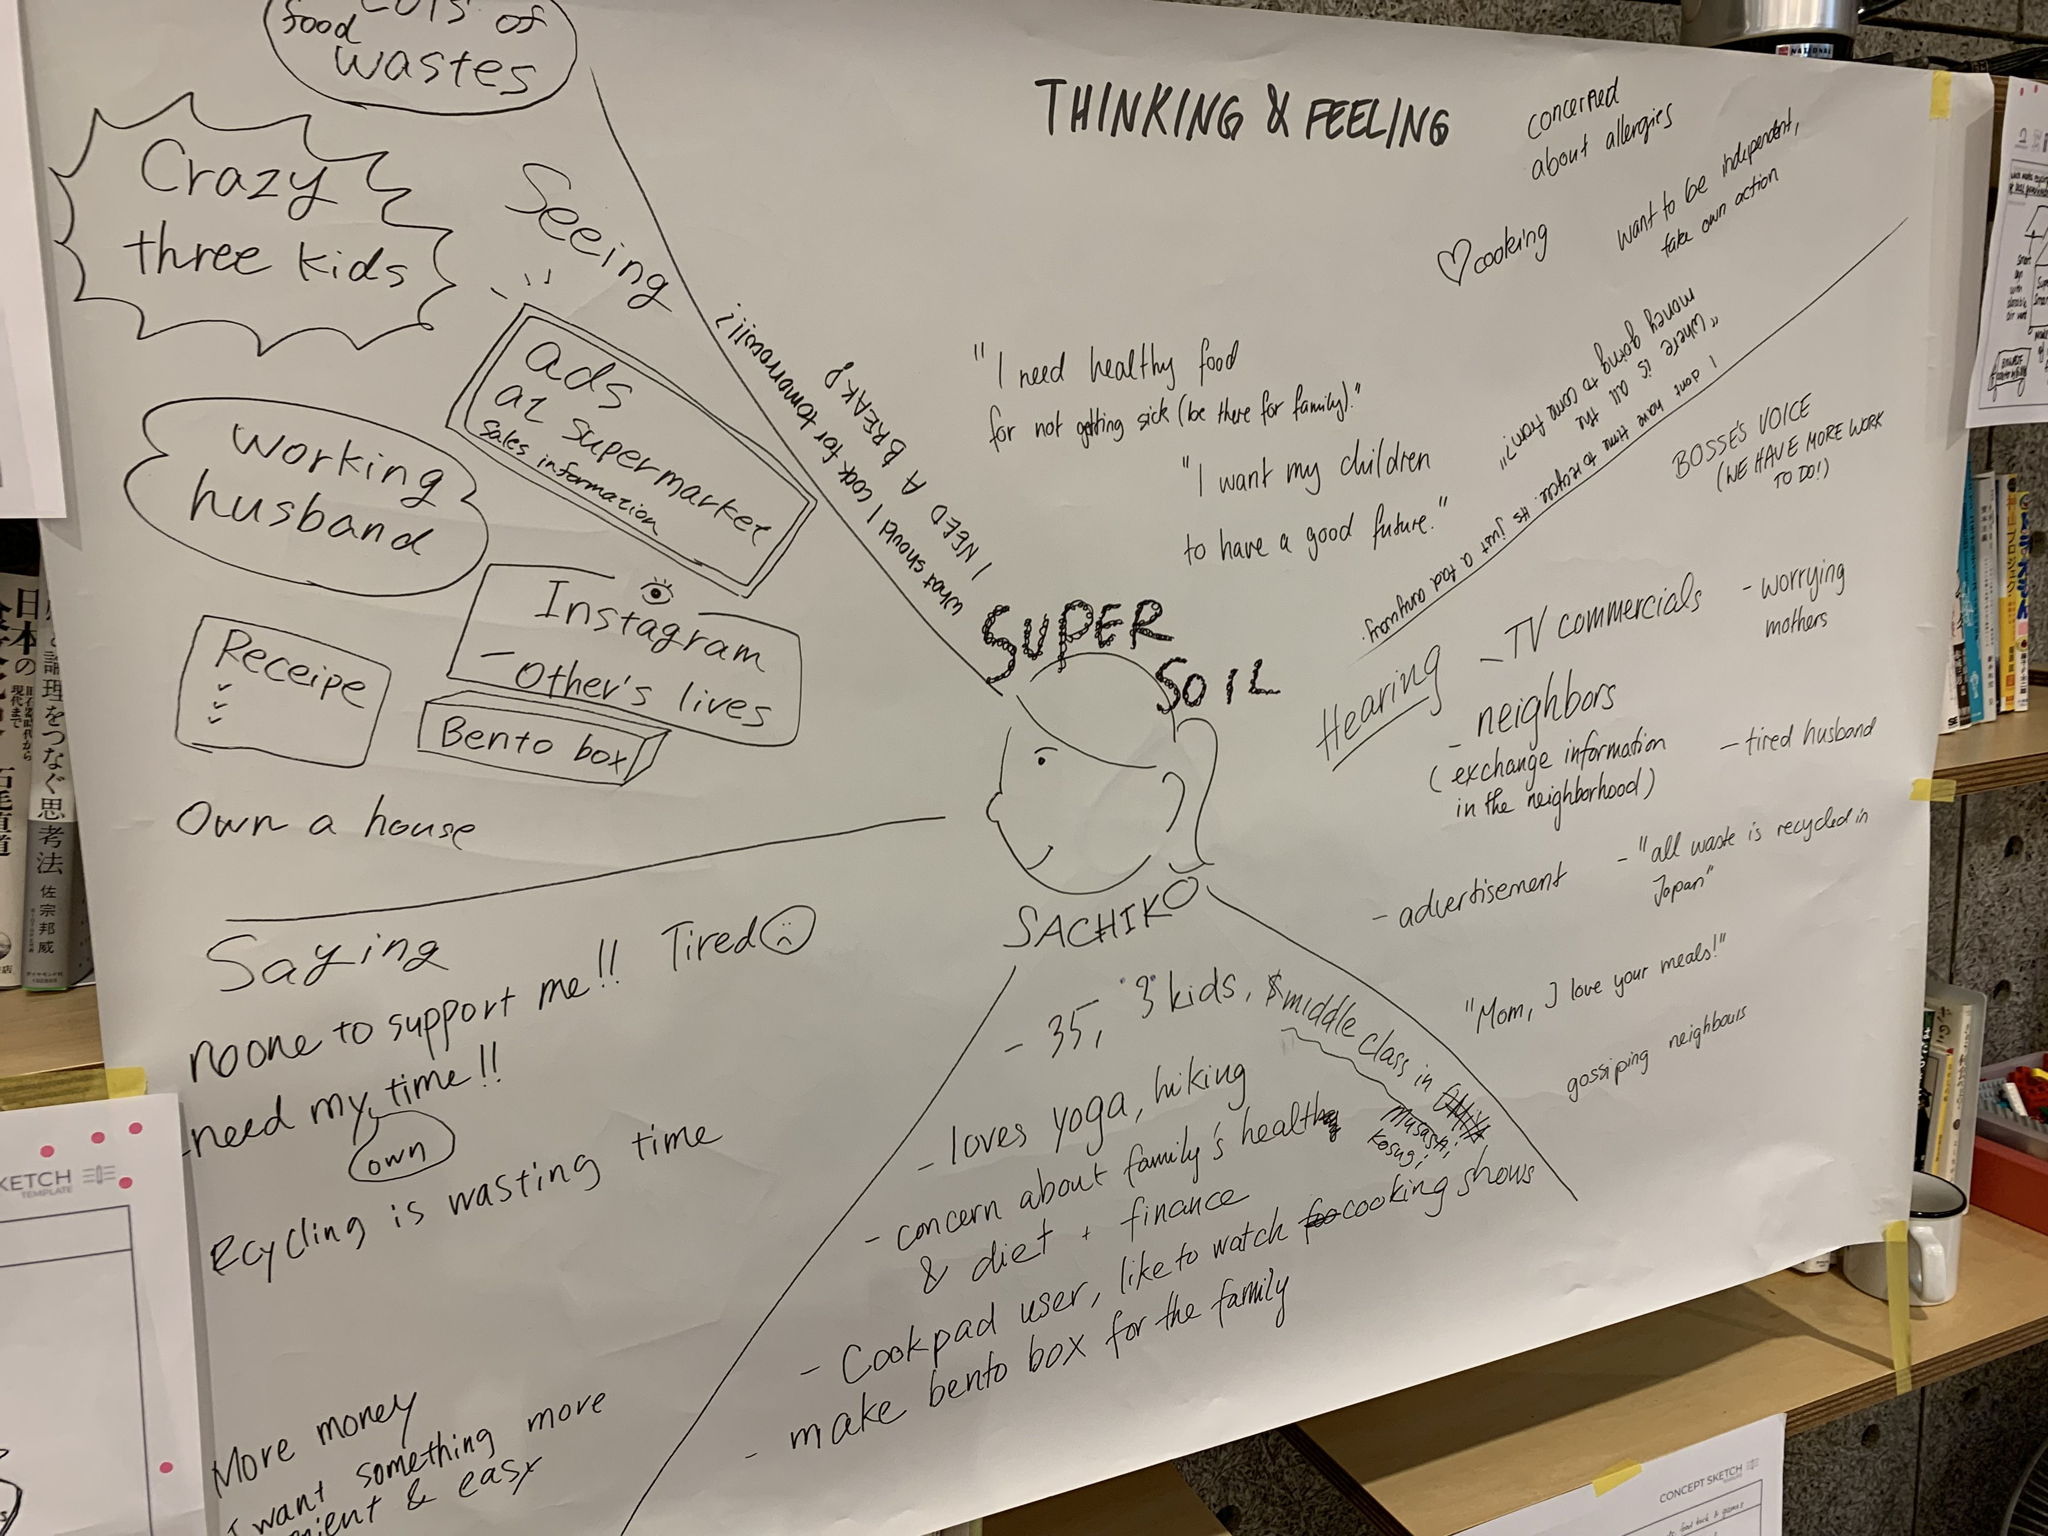 Lots of
food
wastes
Crazy
three kids
Seeing
ads
at supermarket
sales information
working
husband
Instagram
- Other's lives
Receipe
Bento box
Own a house
THINKING & FEELING
concerned
about allergies
♡ cooking
want to be independent,
take own action
"I need healthy food
for not getting sick (be there for family)."
"I want my children
to have a good future."
what should I cook for tomorrow!!!?
I NEED A BREAK?
"where is all the
money going to come from?"
I dont have time to recycle. its just a tad annoying.
SUPER
SOIL
SACHIKO
Hearing
BOSSE'S VOICE
(WE HAVE MORE WORK
TO DO!)
- TV commercials
- worrying
mothers
- neighbors
(exchange information
in the neighborhood)
- tired husband
- advertisement
- "all waste is recycled in
Japan"
"Mom, I love your meals!"
gossiping neighbours
Saying
noone to support me!! Tired
need my time!!
own
Recycling is wasting time
More money
I want something more
& easy
- 35, "3" kids, $middle class in
Musashi
Kosugi
- loves yoga, hiking
- concern about family's health
& diet + finance
- Cookpad user, like to watch cooking shows
- make bento box for the family
日本の
現代まで
石毛直道
論理をつなぐ思考法
佐宗邦威
NATIONAL
SKETCH
TEMPLATE
CONCEPT SKETCH
TEMPLATE